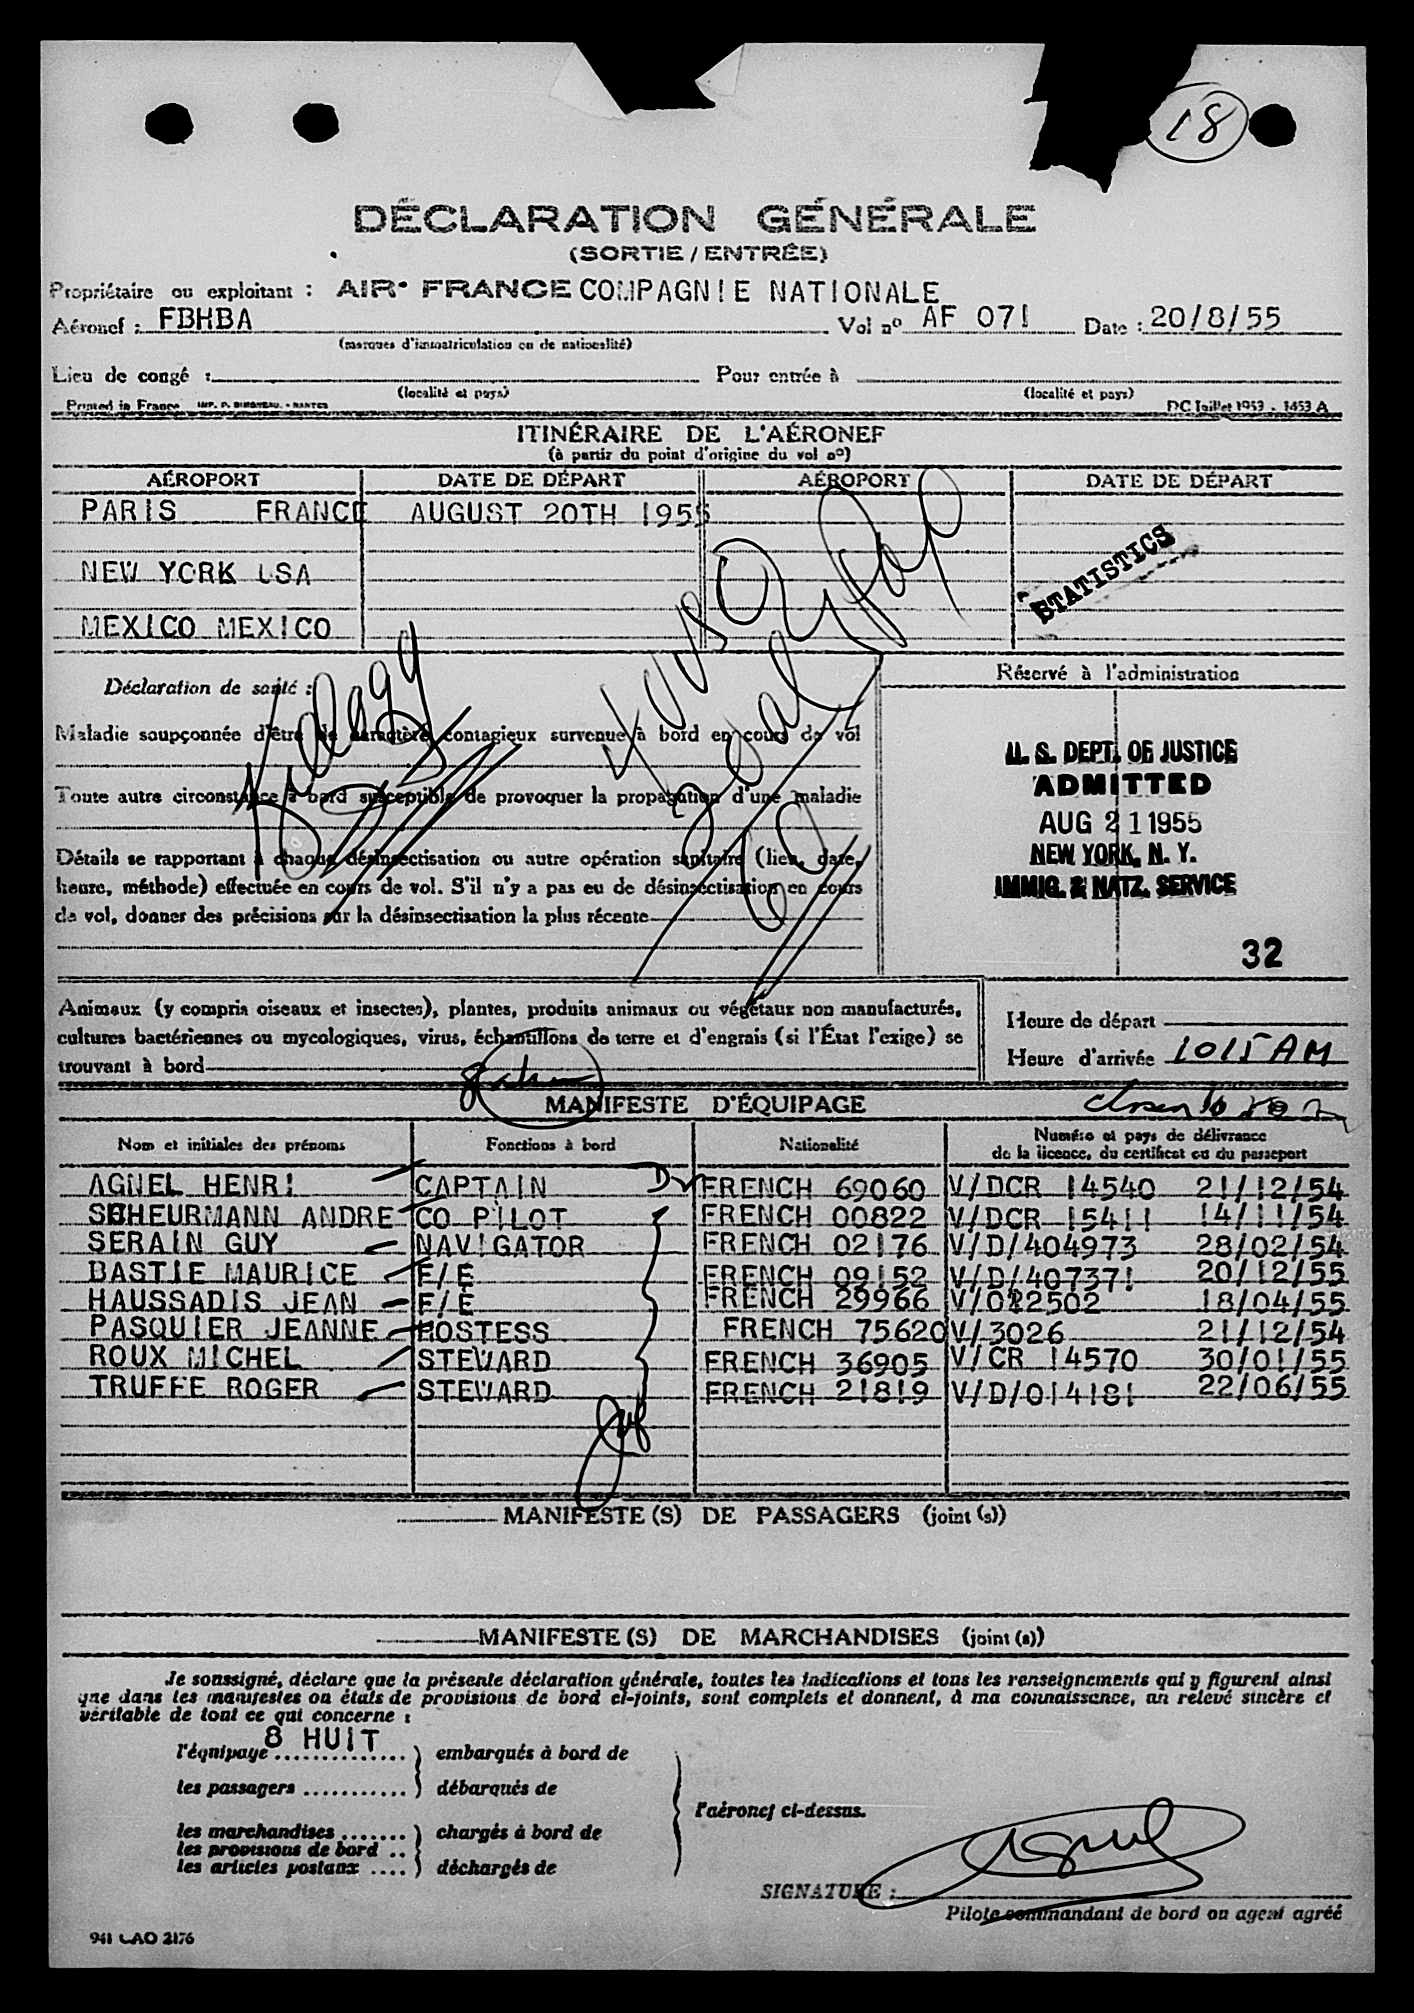 18
DÉCLARATION GÉNÉRALE
(SORTIE / ENTRÉE)
Propriétaire ou exploitant : AIR FRANCE COMPAGNIE NATIONALE
Aéronef : FBHBA Vol nº AF 071 Date : 20/8/55
(marques d'immatriculation ou de nationalité)
Lieu de congé : Pour entrée à
(localité et pays) (localité et pays)
Printed in France IMP. P. - NANTES DC Juillet 1953 - 1453 A
ITINÉRAIRE DE L'AÉRONEF
(à partir du point d'origine du vol nº)
AÉROPORT DATE DE DÉPART AÉROPORT DATE DE DÉPART
PARIS FRANCE AUGUST 20TH 1955
NEW YORK USA
STATISTICS
MEXICO MEXICO
Déclaration de santé : Réservé à l'administration
Maladie soupçonnée d'être de caractère contagieux survenue à bord en cours de vol
Toute autre circonstance à bord susceptible de provoquer la propagation d'une maladie
Détails se rapportant à chaque désinsectisation ou autre opération sanitaire (lieu, date,
heure, méthode) effectuée en cours de vol. S'il n'y a pas eu de désinsectisation en cours
de vol, donner des précisions sur la désinsectisation la plus récente
U. S. DEPT. OF JUSTICE
ADMITTED
AUG 21 1955
NEW YORK, N. Y.
IMMIG. & NATZ. SERVICE
32
Animaux (y compris oiseaux et insectes), plantes, produits animaux ou végétaux non manufacturés,
cultures bactériennes ou mycologiques, virus, échantillons de terre et d'engrais (si l'État l'exige) se
trouvant à bord
Heure de départ
Heure d'arrivée 1015 AM
MANIFESTE D'ÉQUIPAGE
Nom et initiales des prénoms Fonctions à bord Nationalité Numéro et pays de délivrance
de la licence, du certificat ou du passeport
AGNEL HENRI CAPTAIN FRENCH 69060 V/DCR 14540 21/12/54
SCHEURMANN ANDRE CO PILOT FRENCH 00822 V/DCR 15411 14/11/54
SERAIN GUY NAVIGATOR FRENCH 02176 V/D/404973 28/02/54
BASTIE MAURICE F/E FRENCH 09152 V/D/407371 20/12/55
HAUSSADIS JEAN F/E FRENCH 29966 V/022502 18/04/55
PASQUIER JEANNE HOSTESS FRENCH 75620 V/3026 21/12/54
ROUX MICHEL STEWARD FRENCH 36905 V/CR 14570 30/01/55
TRUFFE ROGER STEWARD FRENCH 21819 V/D/014181 22/06/55
MANIFESTE (S) DE PASSAGERS (joint (s))
MANIFESTE (S) DE MARCHANDISES (joint (s))
Je soussigné, déclare que la présente déclaration générale, toutes les indications et tous les renseignements qui y figurent ainsi
que dans les manifestes ou états de provisions de bord ci-joints, sont complets et donnent, à ma connaissance, un relevé sincère et
véritable de tout ce qui concerne :
l'équipage 8 HUIT ) embarqués à bord de
les passagers ........... ) débarqués de
l'aéronef ci-dessus.
les marchandises ....... ) chargés à bord de
les provisions de bord .. }
les articles postaux .... ) déchargés de
SIGNATURE : Agnel
Pilote commandant de bord ou agent agréé
941 CAO 2176